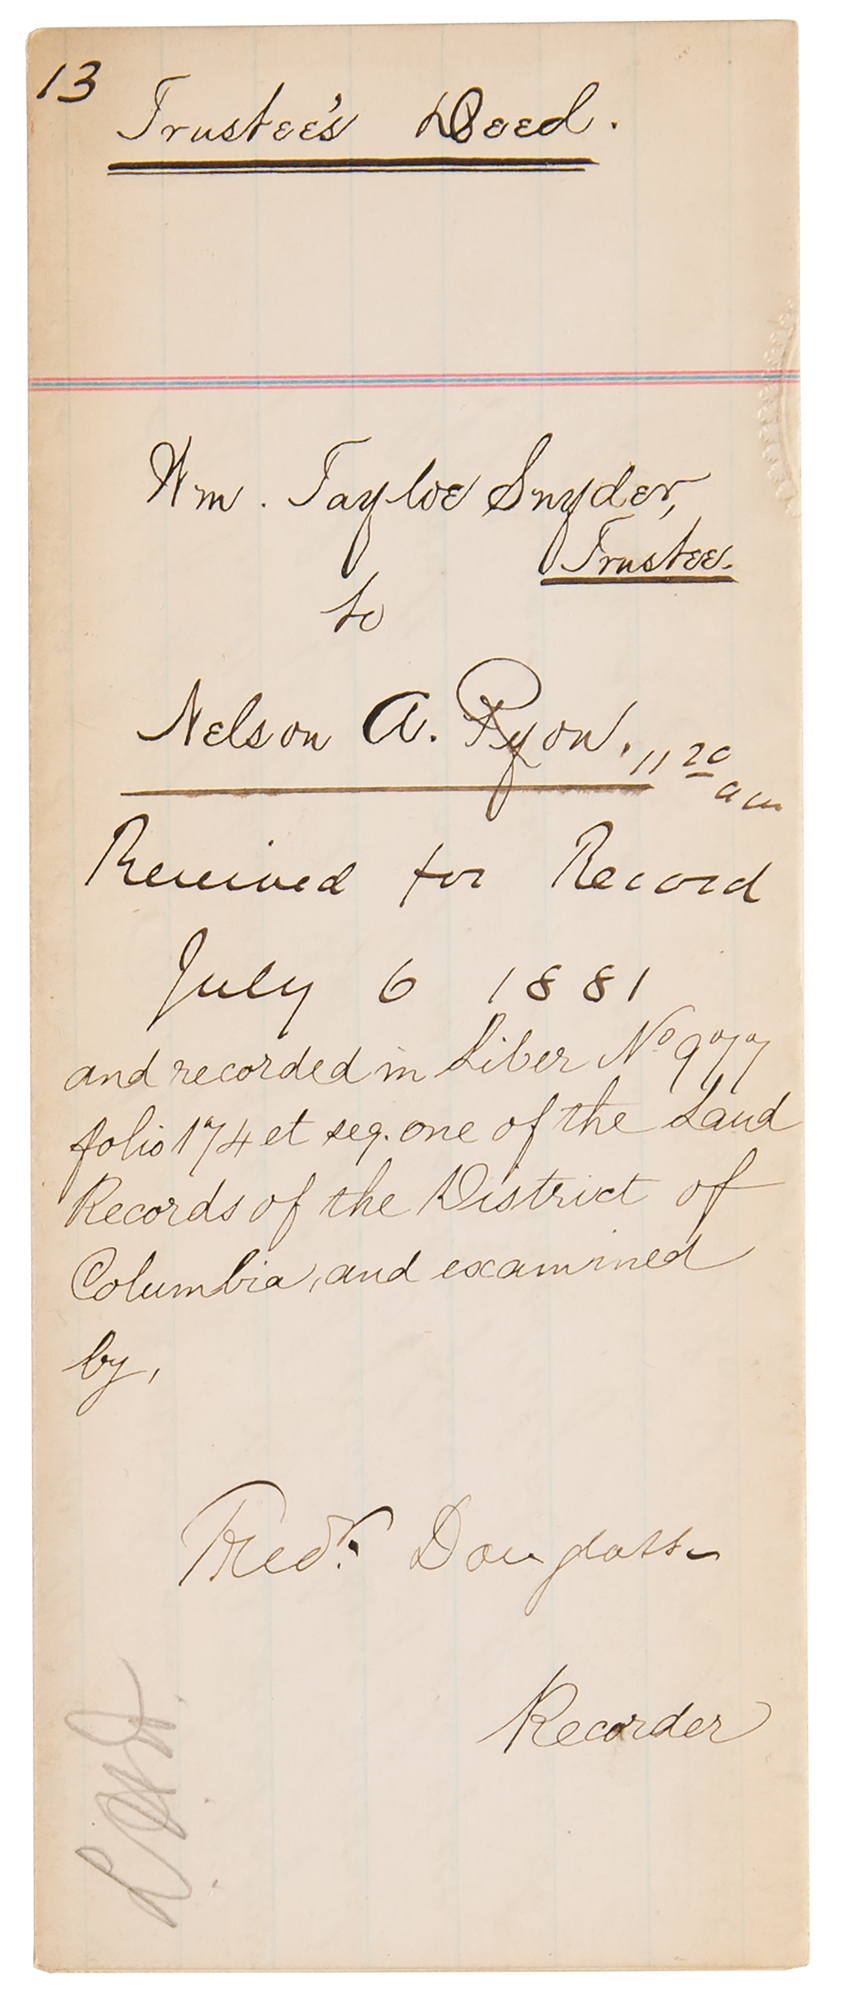 13
Trustee's Deed.
Wm. Tayloe Snyder,
Trustee.
to
Nelson A. Ryon.
11 20 am
Received for Record
July 6 1881
and recorded in Liber No 977
folio 174 et seq. one of the Land
Records of the District of
Columbia, and examined
by,
Fredk. Douglass
Recorder